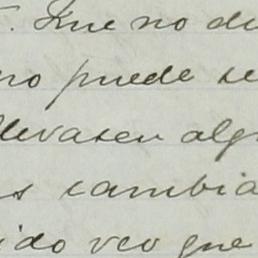 . Que no de
no puede se
llevasen alg
s cambia
ido veo que